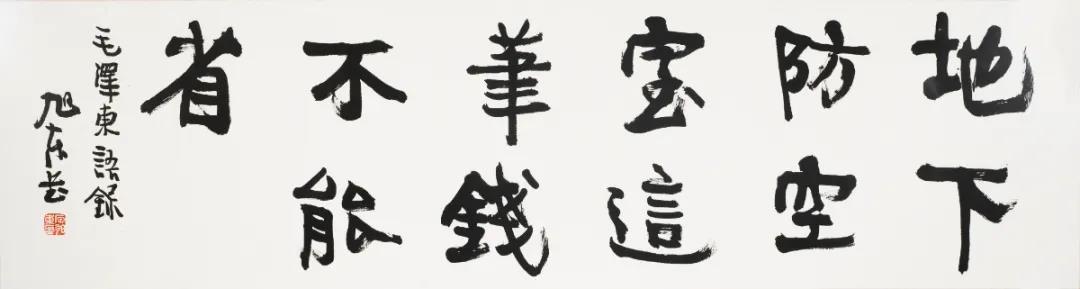 地下
防空
室這
筆錢
不能
省
毛澤東語錄
旭东书